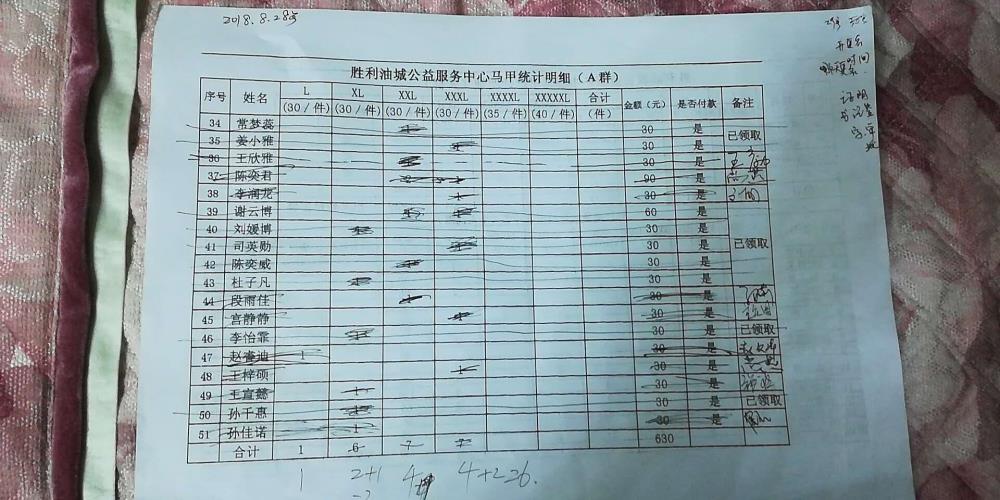 2018.8.28号
胜利油城公益服务中心马甲统计明细（A群）
序号 姓名 L XL XXL XXXL XXXXL XXXXXL 合计 金额（元） 是否付款 备注
(30/件) (30/件) (30/件) (30/件) (35/件) (40/件) (件)
34 常梦蕊 30 是 已领取
35 姜小雅 30 是
36 王欣雅 30 是
37 陈奕君 90 是
38 李润龙 30 是
39 谢云博 60 是 已领取
40 刘媛博 30 是
41 司英勋 30 是
42 陈奕威 30 是
43 杜子凡 30 是
44 段雨佳 30 是
45 宫静静 30 是
46 李怡霏 30 是 已领取
47 赵睿迪 1 30 是
48 王梓硕 30 是
49 王宣懿 1 30 是
50 孙千惠 30 是 已领取
51 孙佳诺 1 30 是
合计 1 6 7 7 630
1 2+1 4 4+2=6.